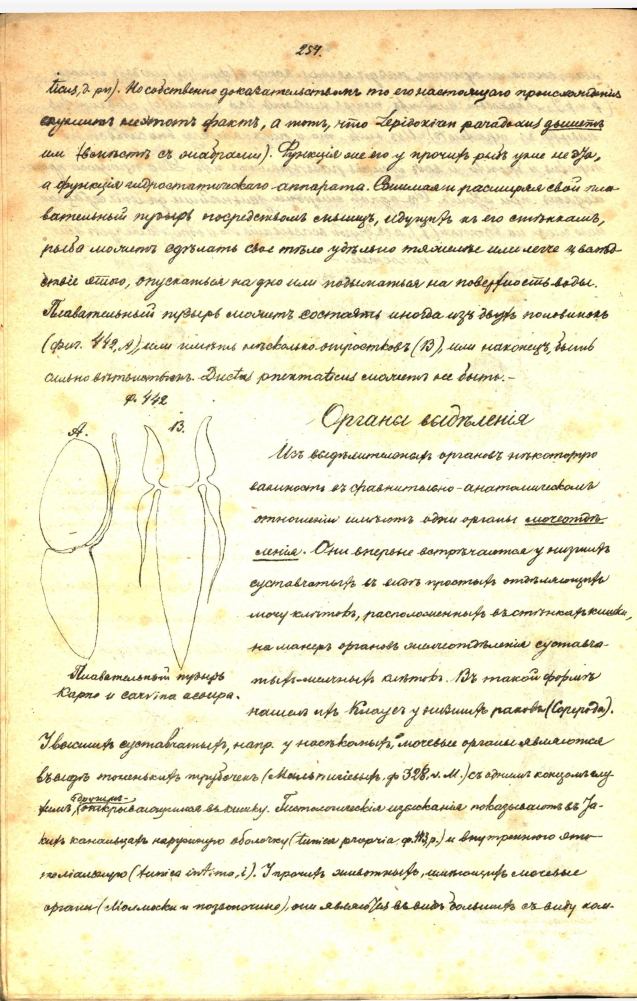 257.
ticus, d. pn). Но собственно доказательствомъ то его настоящаго происхожденія
служитъ не этотъ фактъ, а тотъ, что Lepidosiren paradoxus дышетъ
им (вмѣстѣ съ жабрами). Функція же его у прочихъ рыбъ уже не эта,
а функція гидростатическаго аппарата. Сжимая и расширяя свой пла-
вательный пузырь посредствомъ мышцъ, идущихъ къ его стѣнкамъ,
рыба можетъ сдѣлать свое тѣло удѣльно тяжелѣе или легче и вслѣд-
ствіе этого, опускаться на дно или подыматься на поверхность воды.
Плавательный пузырь можетъ состоять иногда изъ двухъ половинокъ
(фиг. 442, А), или имѣть нѣсколько отростковъ (В), или наконецъ, быть
сильно вѣтвистымъ. Ductus pnevmaticus можетъ не быть.-
ф. 442
А. В.
Плавательный пузырь
Карпа и corvina
Органы выдѣленія
Изъ выдѣлительныхъ органовъ нѣкоторую
важность въ сравнительно-анатомическомъ
отношеніи имѣютъ одни органы мочеотдѣ-
ленія. Они впервые встрѣчаются у низшихъ
суставчатыхъ въ видѣ простыхъ отдѣляющихъ
мочу клѣтокъ, расположенныхъ въ стѣнкахъ кишки,
на манеръ органовъ желчеотдѣленія суставча-
тыхъ-желчныхъ клѣтокъ. Въ такой формѣ
нашелъ ихъ Клаусъ у низшихъ раковъ (Copepoda).
У высшихъ суставчатыхъ, напр. у насѣкомыхъ, мочевые органы являются
въ видѣ тоненькихъ трубочекъ (Мальпигіевыхъ, ф 328, v. М.) съ однимъ концомъ слу-
пымъ, другимъ- открывающимся въ кишку. Гистологическія изысканія показываютъ въ та-
кихъ канальцахъ наружную оболочку (tunica propria, ф. 113, p.) и внутреннюю эпи-
теліальную (tunica intima, i). У прочихъ животныхъ, имѣющихъ мочевые
органы (Моллюски и позвоночные), они являются въ видѣ большихъ съ виду ком-